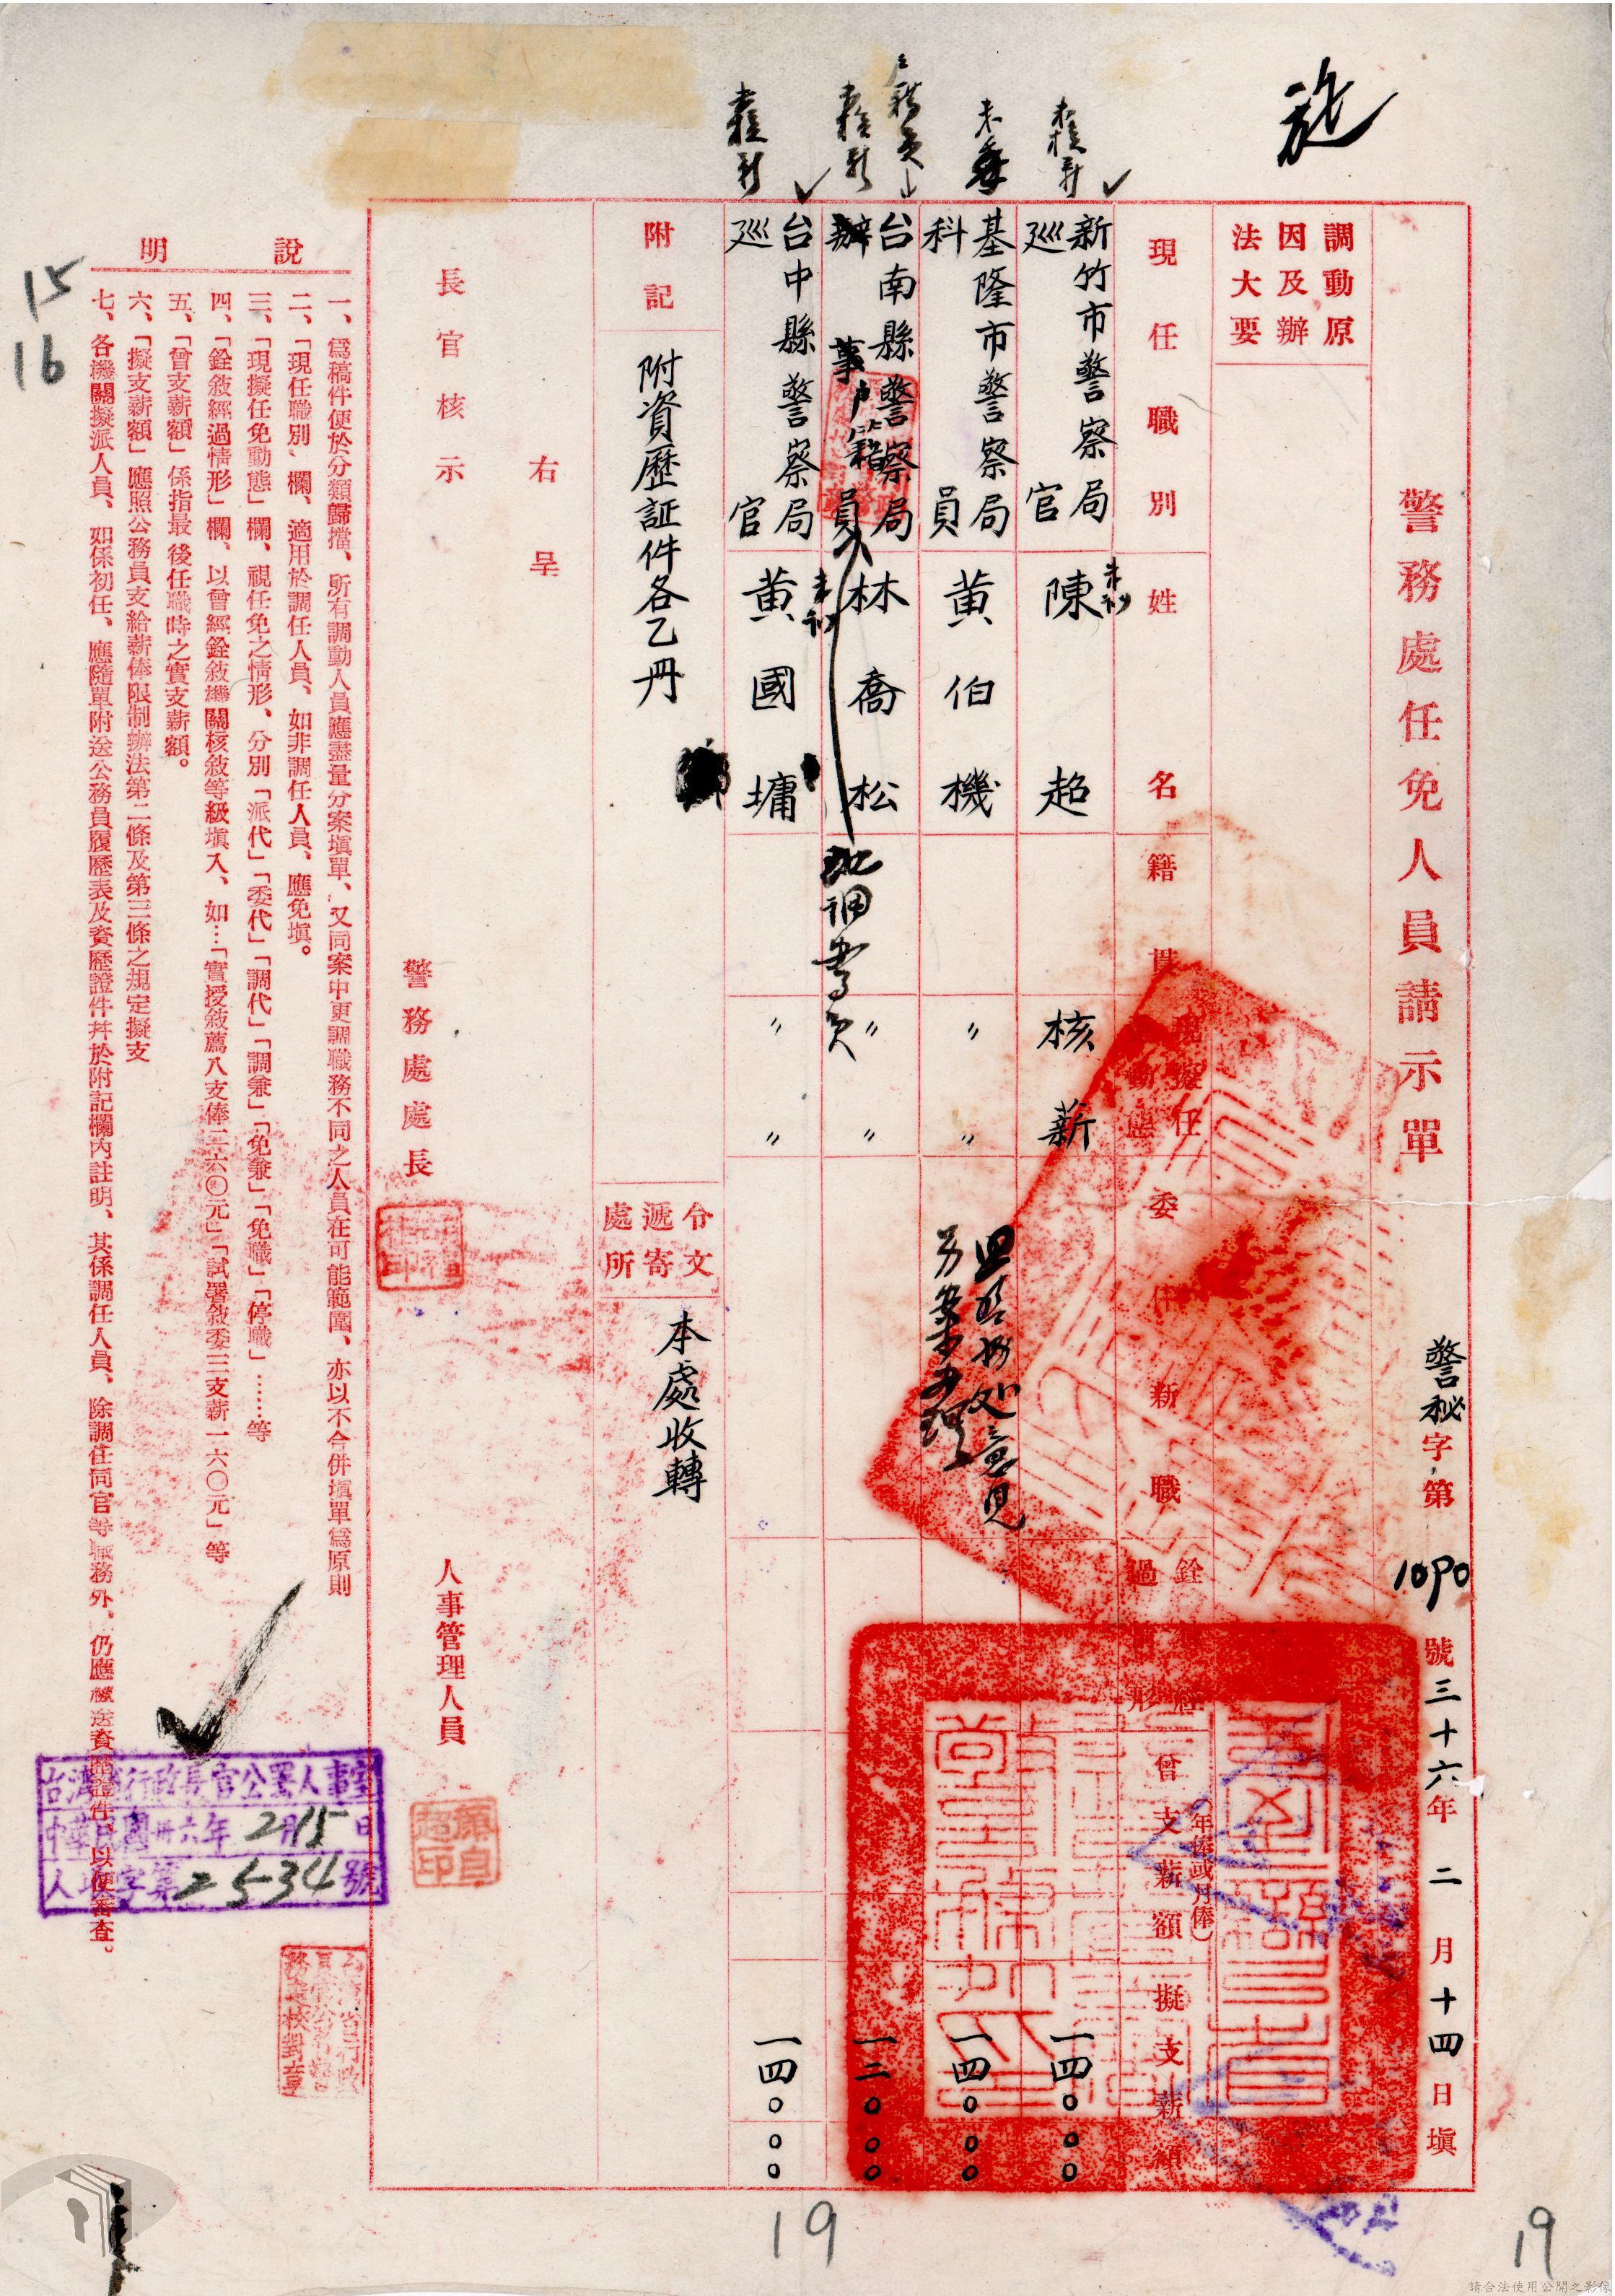 警務處任免人員請示單
警秘字第1090號三十六年二月十四日填
調動原
因及辦
法大要
現任職別
姓名
籍貫
現擬任
動態
委任新職
銓
過
曾支薪額
(年俸或月俸)
擬支薪額
新竹市警察局
巡官
陳超
核薪
一四〇〇〇
基隆市警察局
科員
黃伯機
〃〃
一四〇〇〇
台南縣警察局
辦事員
戶籍
林喬松
〃〃
一三〇〇〇
台中縣警察局
巡官
黃國墉
〃〃
一四〇〇〇
附記
附資歷証件各乙冊
令文
遞寄
處所
本處收轉
右呈
長官核示
警務處處長
人事管理人員
顏自
超印
說明
一、爲稿件便於分類歸檔、所有調動人員應盡量分案塡單、又同案中更調職務不同之人員在可能範圍、亦以不合併塡單爲原則
二、「現任職別」欄、適用於調任人員、如非調任人員、應免塡。
三、「現擬任免動態」欄、視任免之情形、分別「派代」「委代」「調代」「調兼」「免兼」「免職」「停職」……等
四、「銓敘經過情形」欄、以曾經銓敘機關核敘等級塡入、如…「實授敘薦八支俸二六〇元」「試署敘委三支薪一六〇元」等
五、「曾支薪額」係指最後任職時之實支薪額。
六、「擬支薪額」應照公務員支給薪俸限制辦法第二條及第三條之規定擬支
七、各機關擬派人員、如係初任、應隨單附送公務員履歷表及資歷證件幷於附記欄內註明、其係調任人員、除調任同官等職務外、仍應檢送資歷證件、以便審查。
台灣省行政長官公署人事室
中華民國卅六年2月15日
人字第2534號
15
16
19
19
請合法使用公開之影像